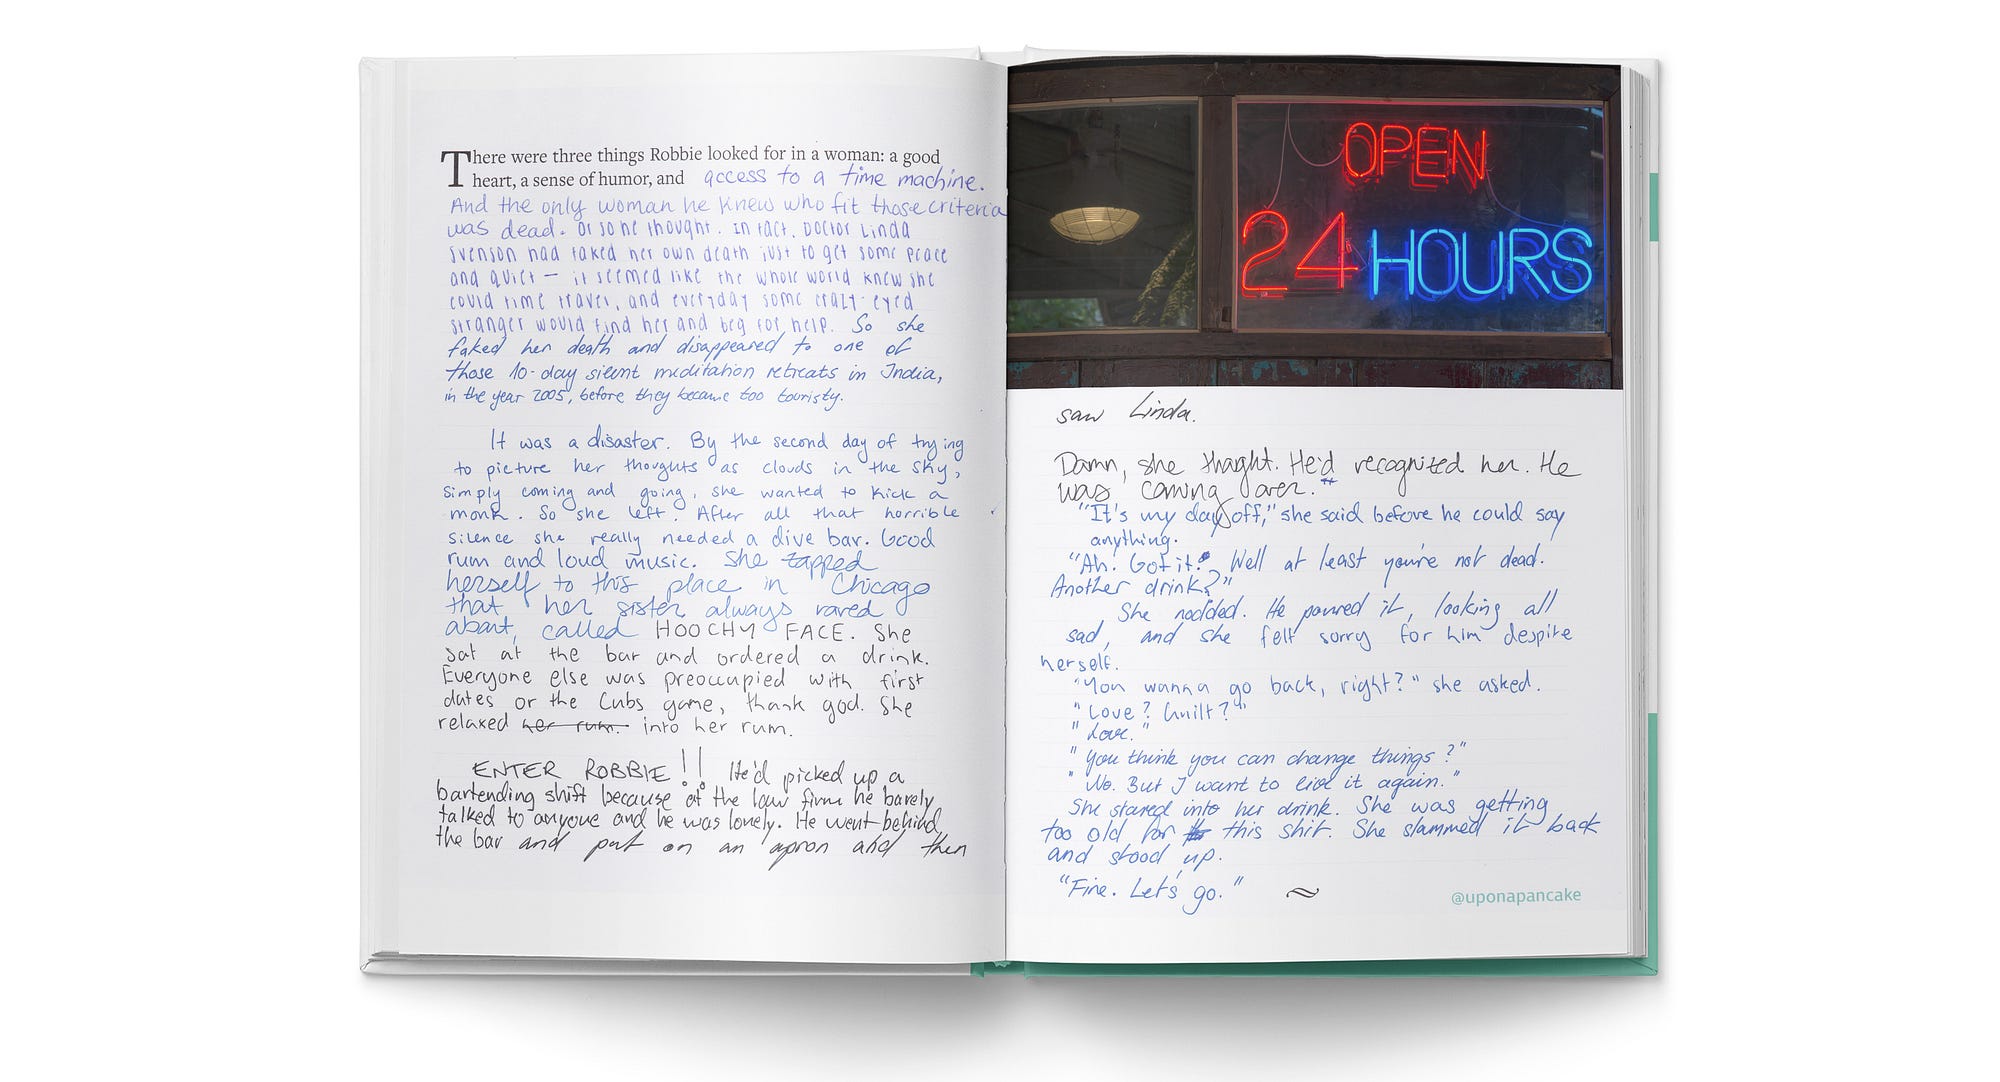 There were three things Robbie looked for in a woman: a good
heart, a sense of humor, and access to a time machine.
And the only woman he knew who fit those criteria
was dead. Or so he thought. In fact, Doctor Linda
Svenson had faked her own death just to get some peace
and quiet — it seemed like the whole world knew she
could time travel, and everyday some crazy-eyed
stranger would find her and beg for help. So she
faked her death and disappeared to one of
those 10-day silent meditation retreats in India,
in the year 2005, before they became too touristy.
It was a disaster. By the second day of trying
to picture her thoughts as clouds in the sky,
simply coming and going, she wanted to kick a
monk. So she left. After all that horrible
silence she really needed a dive bar. Good
rum and loud music. She zapped
herself to this place in Chicago
that her sister always raved
about, called HOOCHY FACE. She
sat at the bar and ordered a drink.
Everyone else was preoccupied with first
dates or the Cubs game, thank god. She
relaxed her rum. into her rum.
ENTER ROBBIE!! He'd picked up a
bartending shift because at the law firm he barely
talked to anyone and he was lonely. He went behind
the bar and put on an apron and then
OPEN
24 HOURS
saw Linda.
Damn, she thought. He'd recognized her. He
was coming over.
"It's my day off," she said before he could say
anything.
"Ah. Got it. Well at least you're not dead.
Another drink?"
She nodded. He poured it, looking all
sad, and she felt sorry for him despite
herself.
"You wanna go back, right?" she asked.
"Love? Guilt?"
"Love."
"You think you can change things?"
"No. But I want to live it again."
She stared into her drink. She was getting
too old for this shit. She slammed it back
and stood up.
"Fine. Let's go."
@uponapancake